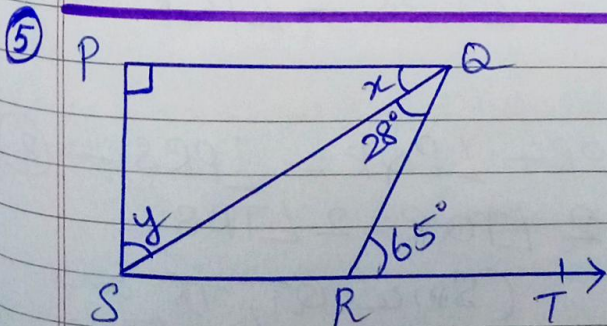 5
P Q
x
28°
y
65°
S R T